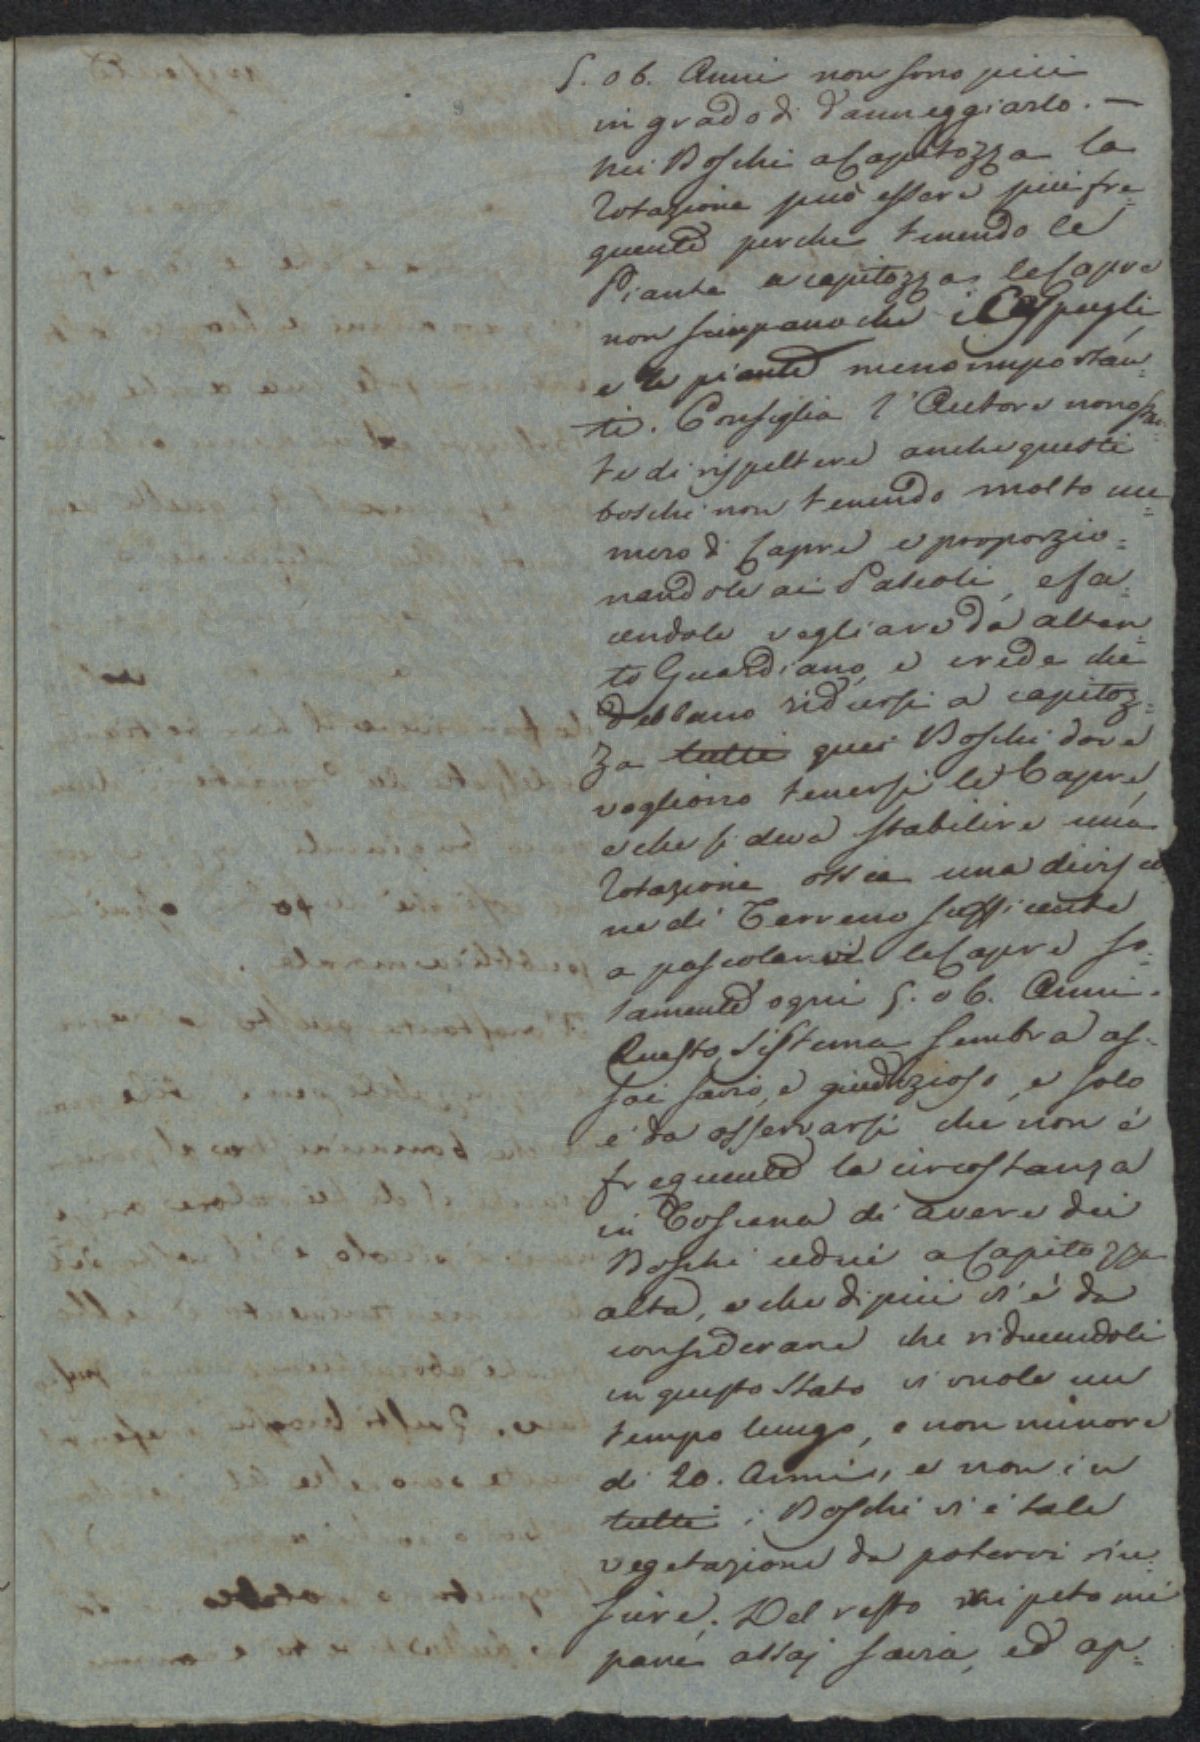 5. o 6. Anni non sono più
in grado di danneggiarlo. —
Nei Boschi a Capitozza la
Rotazione può essere più fre=
quente perche tenendo le
Piante a capitozza le Capre
non sciupano che i Cespugli,
e le piante meno importan=
ti. Consiglia l'Autore nonostan=
te di rispettere anche questi
boschi non tenendo molto nu=
mero di Capre e proporzio=
nandole ai Pascoli, e fa=
cendole vegliare da atten=
to Guardiano, e crede che
debbano ridursi a capitoz=
za tutti quei Boschi dove
vogliono tenersi le Capre,
e che si deva stabilire una
Rotazione ossia una divisio=
ne di Terreno sufficente
a pascolarvi le Capre so=
lamente ogni 5. o 6. Anni.
Questo sistema sembra as=
sai savio, e giudizioso, e solo
e' da osservarsi che non è
frequente la circostanza
in Toscana di avere dei
Boschi cedui a Capitozza
alta, e che di più vi è da
considerare che riducendoli
in questo stato vi vuole un
tempo lungo, e non minore
di 20. Anni, e non in
tutti i Boschi vi è tale
vegetazione da potervi riu=
scire. Del resto ripeto mi
pare assaj savia, ed ap=